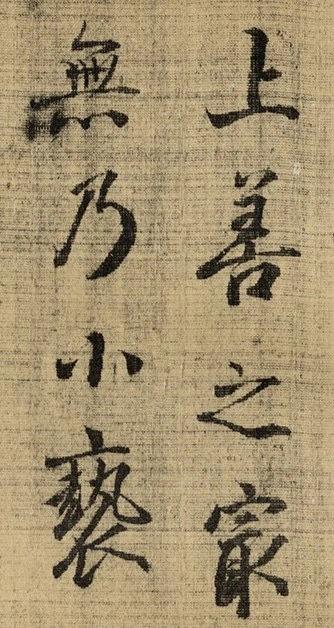 上善之㝡
無乃小褻